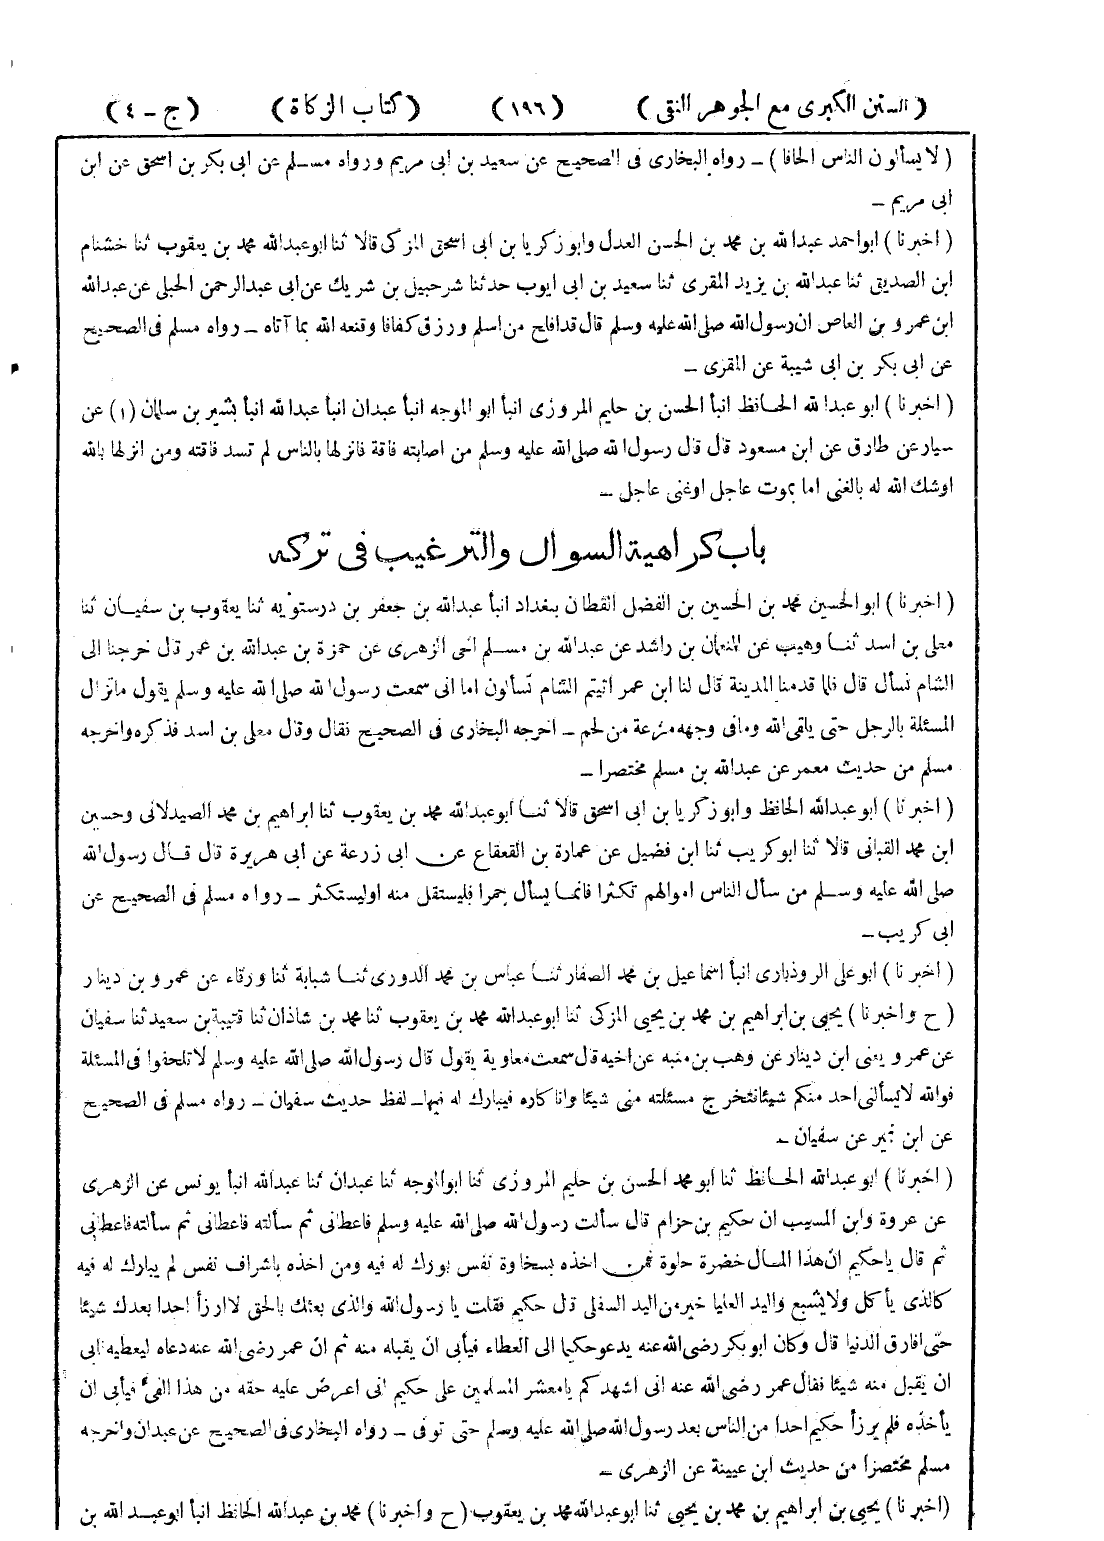 ( السنن الكبرى مع الجوهر النقى ) ( ١٩٦ ) ( كتاب الزكاة ) ( ج ـ ٤ )
( لا يسألون الناس الحافا ) ـ رواه البخارى فى الصحيح عن سعيد بن ابى مريم ورواه مسلم عن ابى بكر بن اسحق عن ابن
ابى مريم ـ
( اخبرنا ) ابواحمد عبدالله بن محمد بن الحسن العدل وابو زكريا بن ابى اسحق المزكى قالا ثنا ابوعبدالله محمد بن يعقوب ثنا خشنام
ابن الصديق ثنا عبدالله بن يزيد المقرى ثنا سعيد بن ابى ايوب حدثنا شرحبيل بن شريك عن ابى عبدالرحمن الحبلى عن عبدالله
ابن عمرو بن العاص ان رسول الله صلى الله عليه وسلم قال قد افلح من اسلم ورزق كفافا وقنعه الله بما آتاه ـ رواه مسلم فى الصحيح
عن ابى بكر بن ابى شيبة عن المقرى ـ
( اخبرنا ) ابو عبدالله الحافظ انبأ الحسن بن حليم المروزى انبأ ابو الموجه انبأ عبدان انبأ عبدالله انبأ بشير بن سلمان (١) عن
سيار عن طارق عن ابن مسعود قال قال رسول الله صلى الله عليه وسلم من اصابته فاقة فانزلها بالناس لم تسد فاقته ومن انزلها بالله
اوشك الله له بالغنى اما بموت عاجل اوغنى عاجل ـ
باب كراهية السوال والترغيب فى تركه
( اخبرنا ) ابوالحسين محمد بن الحسين بن الفضل القطان ببغداد انبأ عبدالله بن جعفر بن درستويه ثنا يعقوب بن سفيان ثنا
معلى بن اسد ثنا وهيب عن النعمان بن راشد عن عبدالله بن مسلم اخى الزهرى عن حمزة بن عبدالله بن عمر قال خرجنا الى
الشام نسأل قال فلما قدمنا المدينة قال لنا ابن عمر اتيتم الشام تسألون اما انى سمعت رسول الله صلى الله عليه وسلم يقول ما تزال
المسئلة بالرجل حتى يلقى الله وما فى وجهه مزعة من لحم ـ اخرجه البخارى فى الصحيح فقال وقال معلى بن اسد فذكره واخرجه
مسلم من حديث معمر عن عبدالله بن مسلم مختصرا ـ
( اخبرنا ) ابو عبدالله الحافظ وابو زكريا بن ابى اسحق قالا ثنا ابوعبدالله محمد بن يعقوب ثنا ابراهيم بن محمد الصيدلانى وحسين
ابن محمد القبانى قالا ثنا ابوكريب ثنا ابن فضيل عن عمارة بن القعقاع عن ابى زرعة عن أبى هريرة قال قال رسول الله
صلى الله عليه وسلم من سأل الناس اموالهم تكثرا فانما يسأل جمرا فليستقل منه اوليستكثر ـ رواه مسلم فى الصحيح عن
ابى كريب ـ
( اخبرنا ) ابو على الروذبارى انبأ اسماعيل بن محمد الصفار ثنا عباس بن محمد الدورى ثنا شبابة ثنا ورقاء عن عمرو بن دينار
( ح واخبرنا ) يحيى بن ابراهيم بن محمد بن يحيى المزكى ثنا ابوعبدالله محمد بن يعقوب ثنا محمد بن شاذان ثنا قتيبة بن سعيد ثنا سفيان
عن عمرو يعنى ابن دينار عن وهب بن منبه عن اخيه قال سمعت معاوية يقول قال رسول الله صلى الله عليه وسلم لا تلحفوا فى المسئلة
فوالله لا يسألنى احد منكم شيئا فتخرج مسئلته منى شيئا وانا كاره فيبارك له فيها ـ لفظ حديث سفيان ـ رواه مسلم فى الصحيح
عن ابن نمير عن سفيان ـ
( اخبرنا ) ابو عبدالله الحافظ ثنا أبو محمد الحسن بن حليم المروزى ثنا ابوالموجه ثنا عبدان ثنا عبدالله انبأ يونس عن الزهرى
عن عروة وابن المسيب ان حكيم بن حزام قال سألت رسول الله صلى الله عليه وسلم فاعطانى ثم سألته فاعطانى ثم سألته فاعطانى
ثم قال ياحكيم ان هذا المال خضرة حلوة فمن اخذه بسخاوة نفس بورك له فيه ومن اخذه باشراف نفس لم يبارك له فيه
كالذى يأكل ولا يشبع واليد العليا خير من اليد السفلى قال حكيم فقلت يا رسول الله والذى بعثك بالحق لا ارزأ احدا بعدك شيئا
حتى افارق الدنيا قال وكان ابو بكر رضى الله عنه يدعو حكيما الى العطاء فيأبى ان يقبله منه ثم ان عمر رضى الله عنه دعاه ليعطيه ابى
ان يقبل منه شيئا فقال عمر رضى الله عنه انى اشهدكم يا معشر المسلمين على حكيم انى اعرض عليه حقه من هذا الفىء فيأبى ان
يأخذه فلم يرزأ حكيم احدا من الناس بعد رسول الله صلى الله عليه وسلم حتى توفى ـ رواه البخارى فى الصحيح عن عبدان واخرجه
مسلم مختصرا من حديث ابن عيينة عن الزهرى ـ
( اخبرنا ) يحيى بن ابراهيم بن محمد بن يحيى ثنا ابوعبدالله محمد بن يعقوب ( ح واخبرنا ) محمد بن عبدالله الحافظ انبأ ابوعبدالله بن